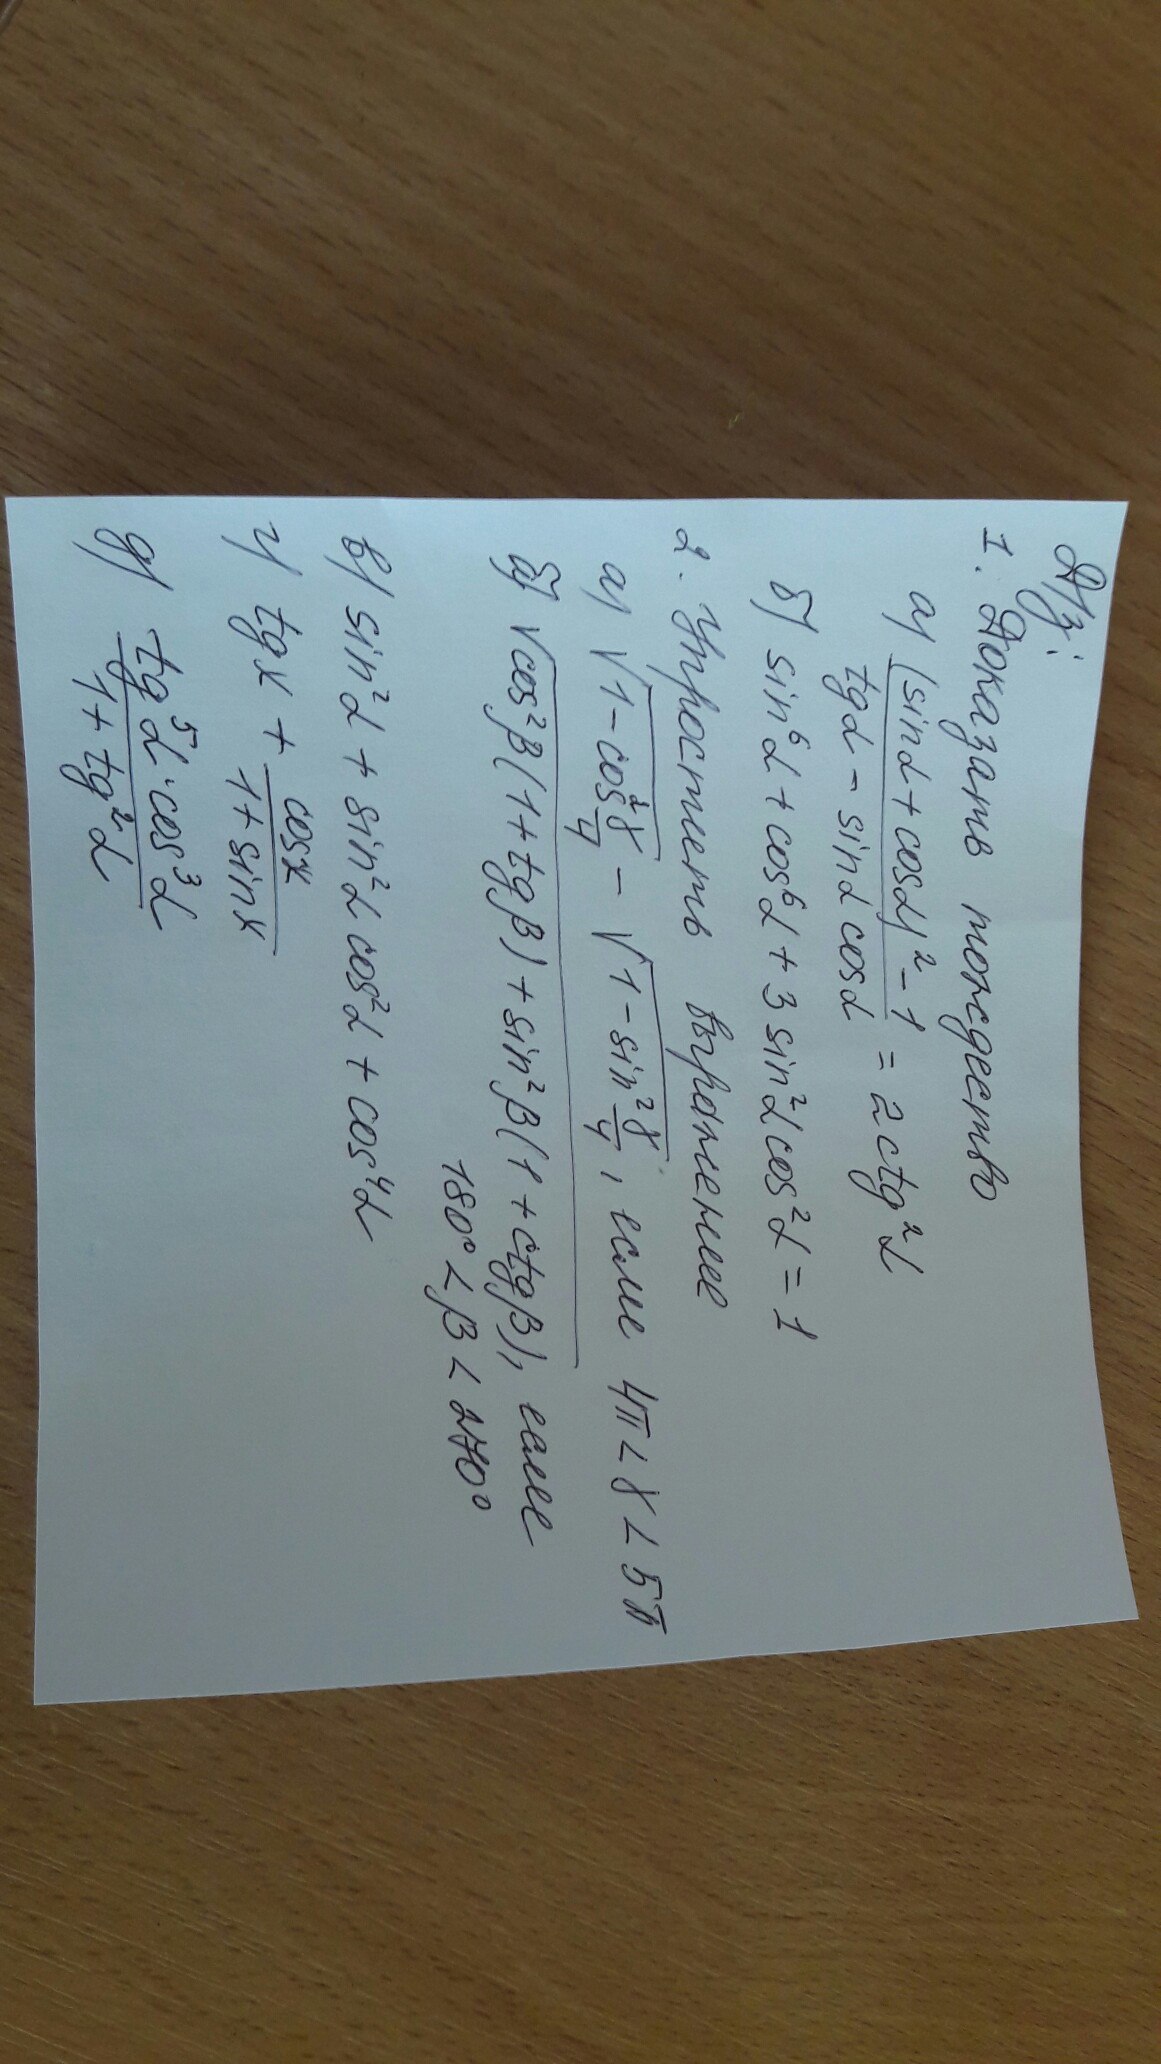 Д/з:
1. Доказать тождество
а) (sinα + cosα)² - 1 / tgα - sinα cosα = 2ctg²α
б) sin⁶α + cos⁶α + 3 sin²α cos²α = 1
2. Упростить выражение
а) √1 - cos² γ/4 - √1 - sin² γ/4, если 4π < γ < 5π
б) √cos²β(1 + tgβ) + sin²β(1 + ctgβ), если
180° < β < 270°
в) sin²α + sin²α cos²α + cos⁴α
г) tgx + cosx / 1 + sinx
д) tg⁵α · cos³α / 1 + tg²α